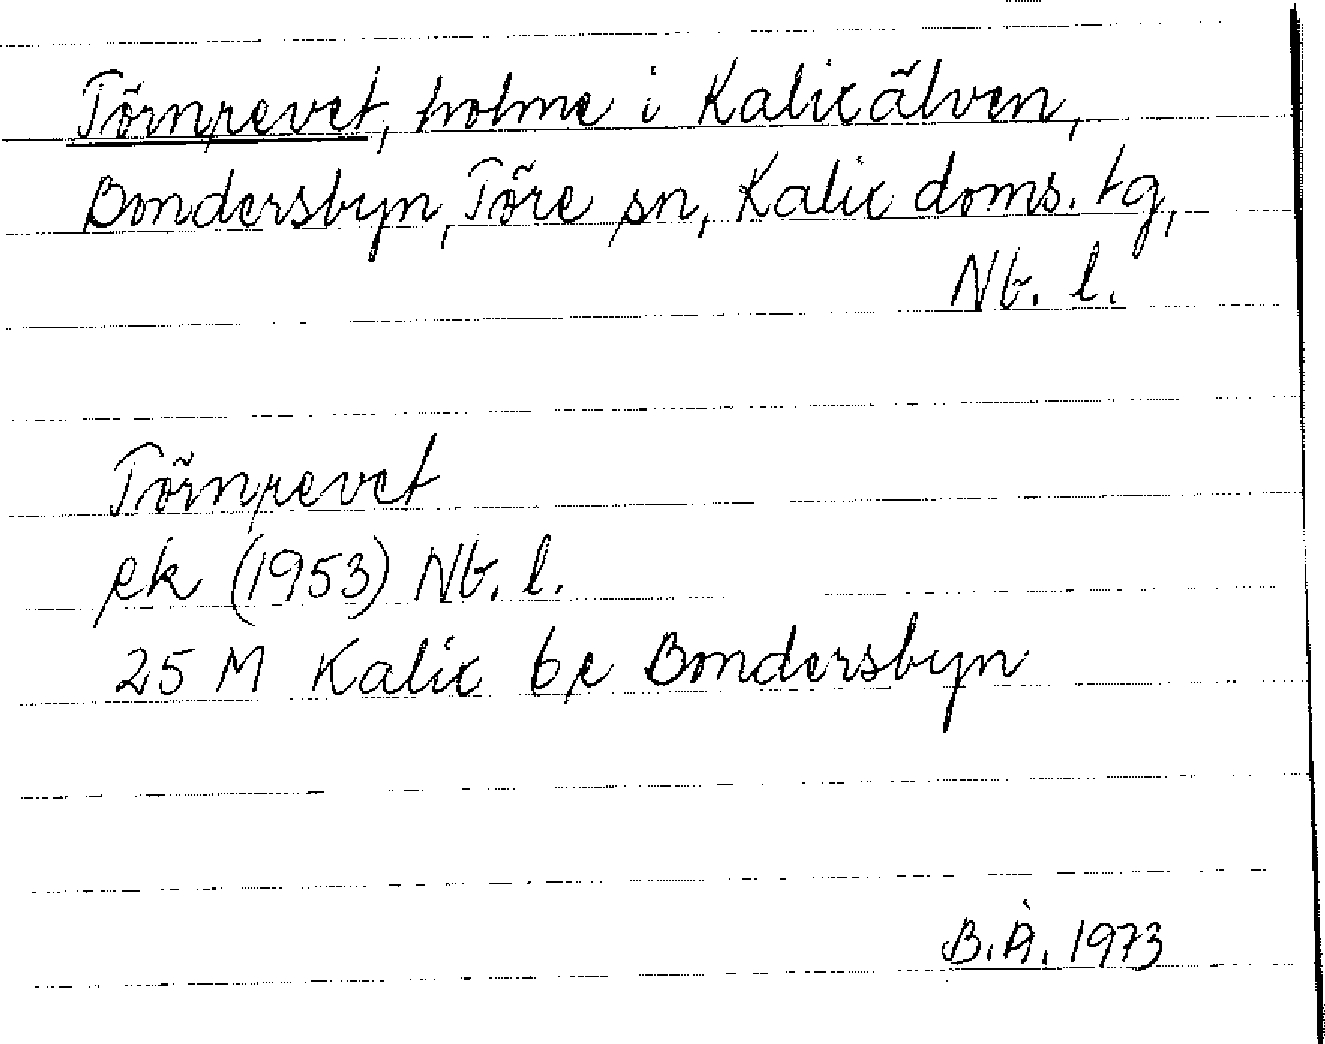 Törnrevet, holme i Kalixälven,
Bondersbyn, Töre sn, Kalix doms. tg,
Nb. l.
Törnrevet
ek (1953) Nb. l.
25 M Kalix 6e Bondersbyn
B.Å. 1973